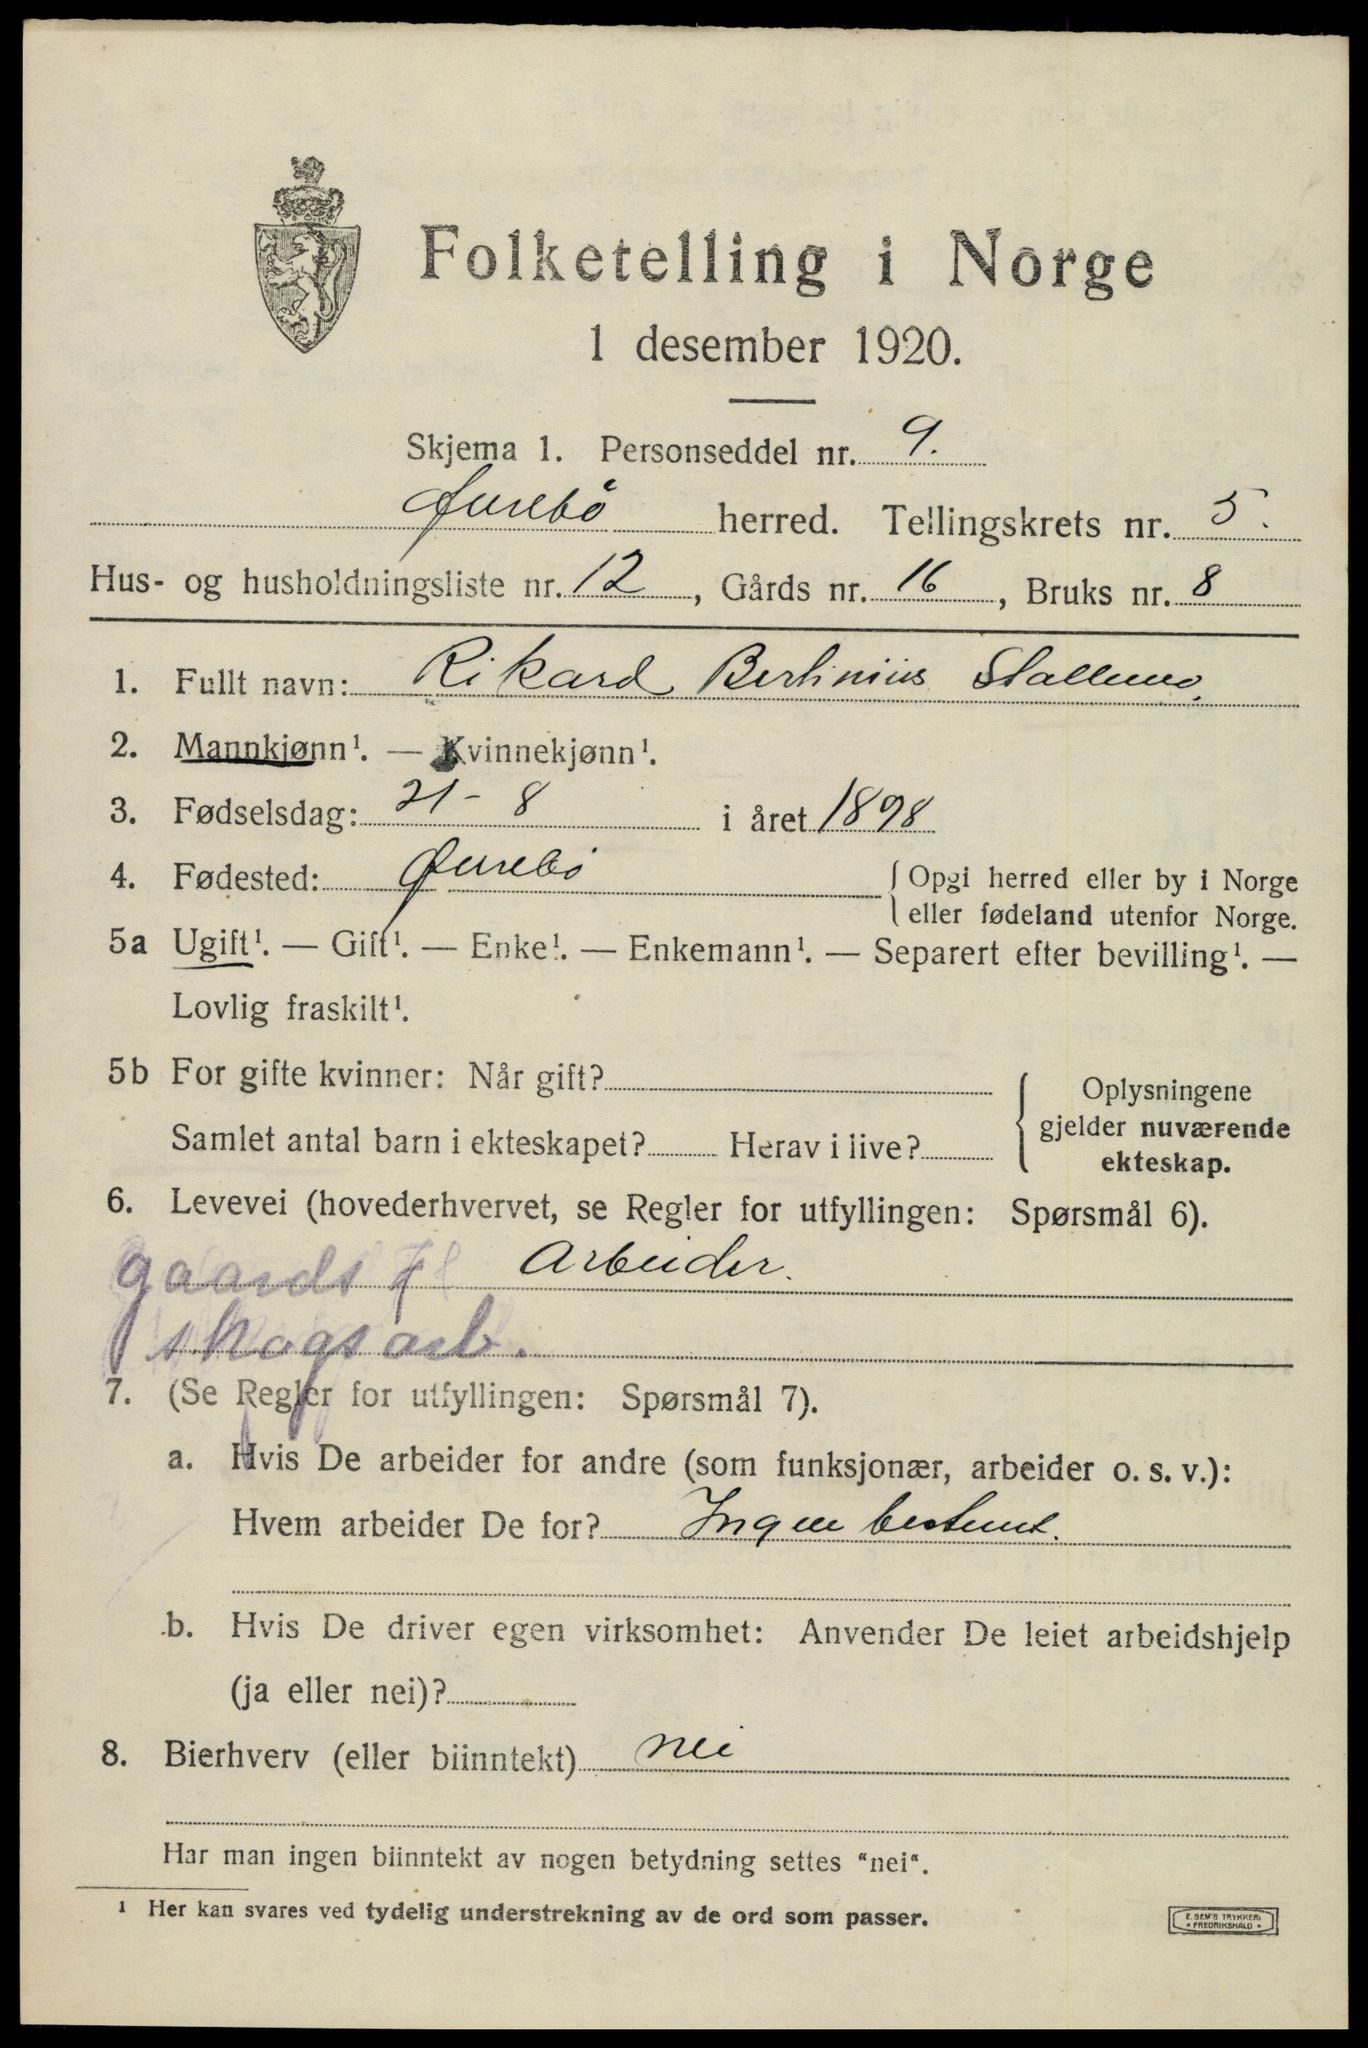 Folketelling i Norge
1 desember 1920.
Skjema 1. Personseddel nr. 9.
Øurebö herred. Tellingskrets nr. 5.
Hus- og husholdningsliste nr. 12, Gårds nr. 16, Bruks nr. 8
1. Fullt navn: Rikard Bertinius Stallemo.
2. Mannkjønn¹. — Kvinnekjønn¹.
3. Fødselsdag: 21 - 8 i året 1898
4. Fødested: Øurebö { Opgi herred eller by i Norge
eller fødeland utenfor Norge.
5a Ugift¹. — Gift¹. — Enke¹. — Enkemann¹. — Separert efter bevilling¹. —
Lovlig fraskilt¹.
5b For gifte kvinner: Når gift?
Samlet antal barn i ekteskapet? Herav i live?
{ Oplysningene
gjelder nuværende
ekteskap.
6. Levevei (hovederhvervet, se Regler for utfyllingen: Spørsmål 6).
gaards Arbeider.
skogsarb.
7. (Se Regler for utfyllingen: Spørsmål 7).
a. Hvis De arbeider for andre (som funksjonær, arbeider o. s. v.):
Hvem arbeider De for? Ingen bestemt.
b. Hvis De driver egen virksomhet: Anvender De leiet arbeidshjelp
(ja eller nei)?
8. Bierhverv (eller biinntekt) nei
Har man ingen biinntekt av nogen betydning settes "nei".
¹ Her kan svares ved tydelig understrekning av de ord som passer.
E. SEM'S TRYKKERI
FREDRIKSHALD